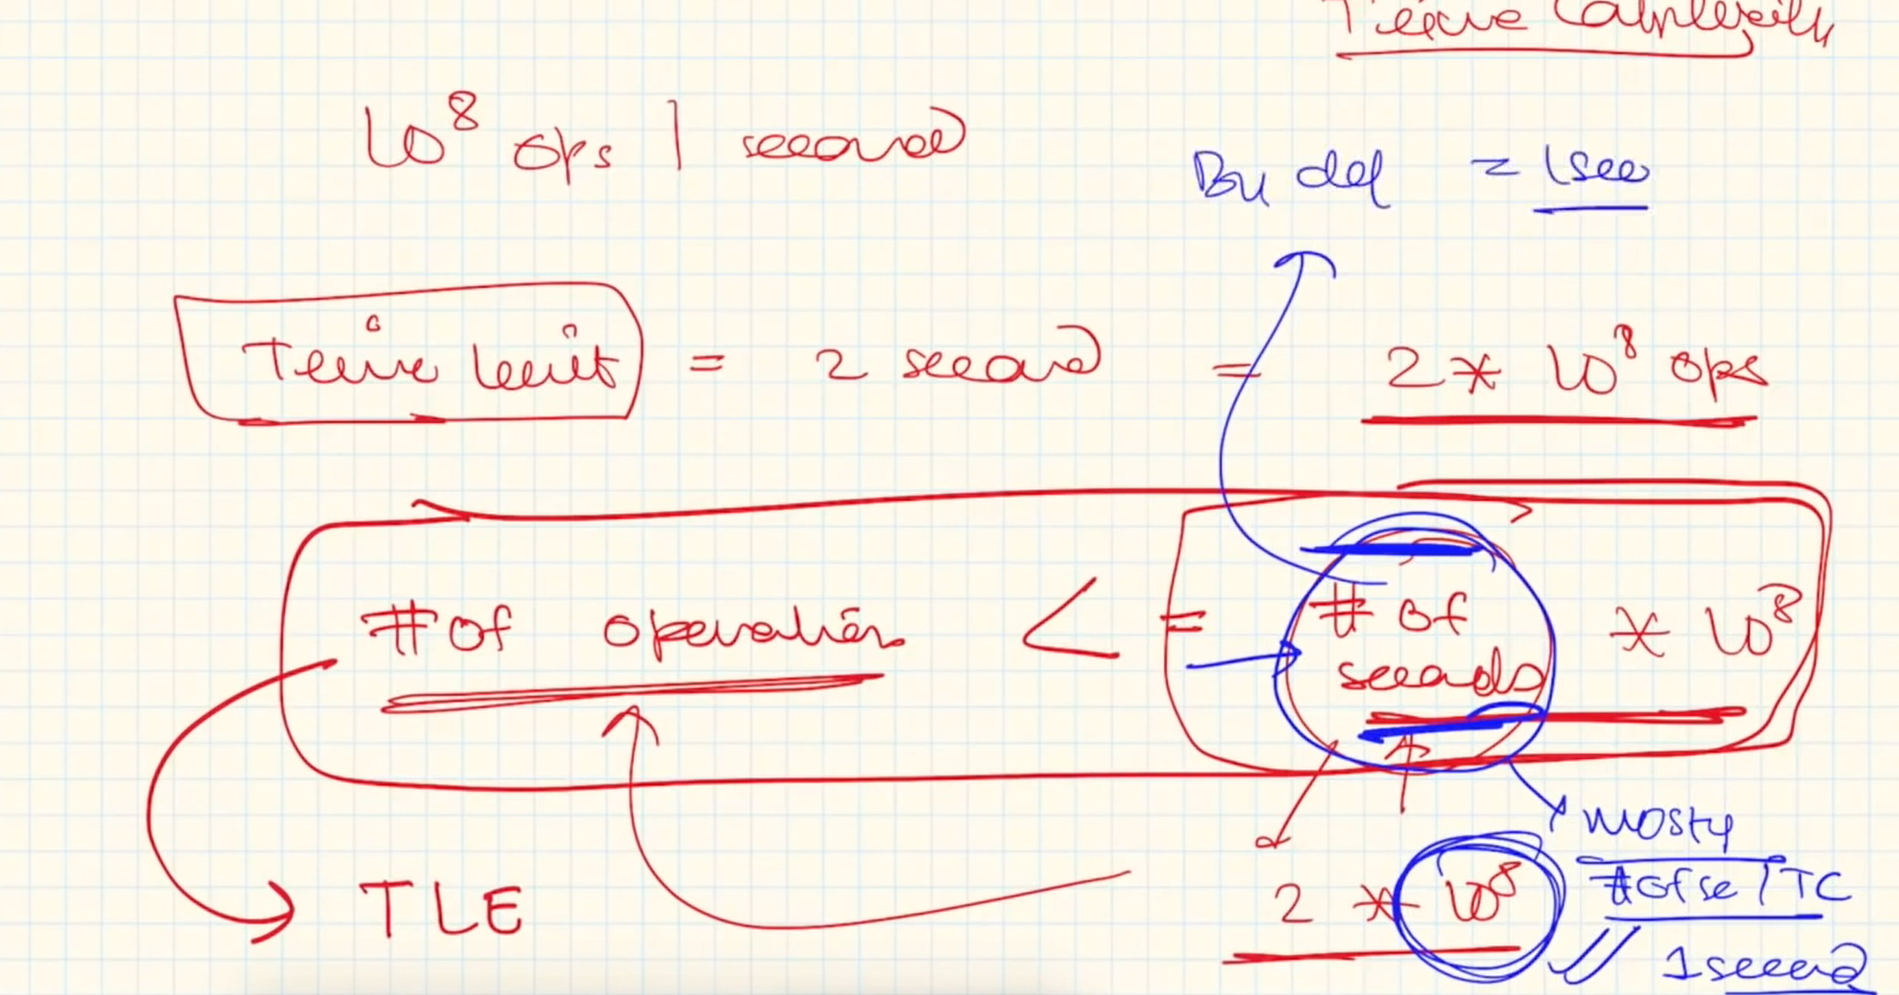 Time Complexity
10^8 ops / second
By def = 1 sec
Time limit = 2 second = 2 * 10^8 ops
# of operations <= # of seconds * 10^8
TLE
2 * 10^8
mosty
# of se / TC
1 second